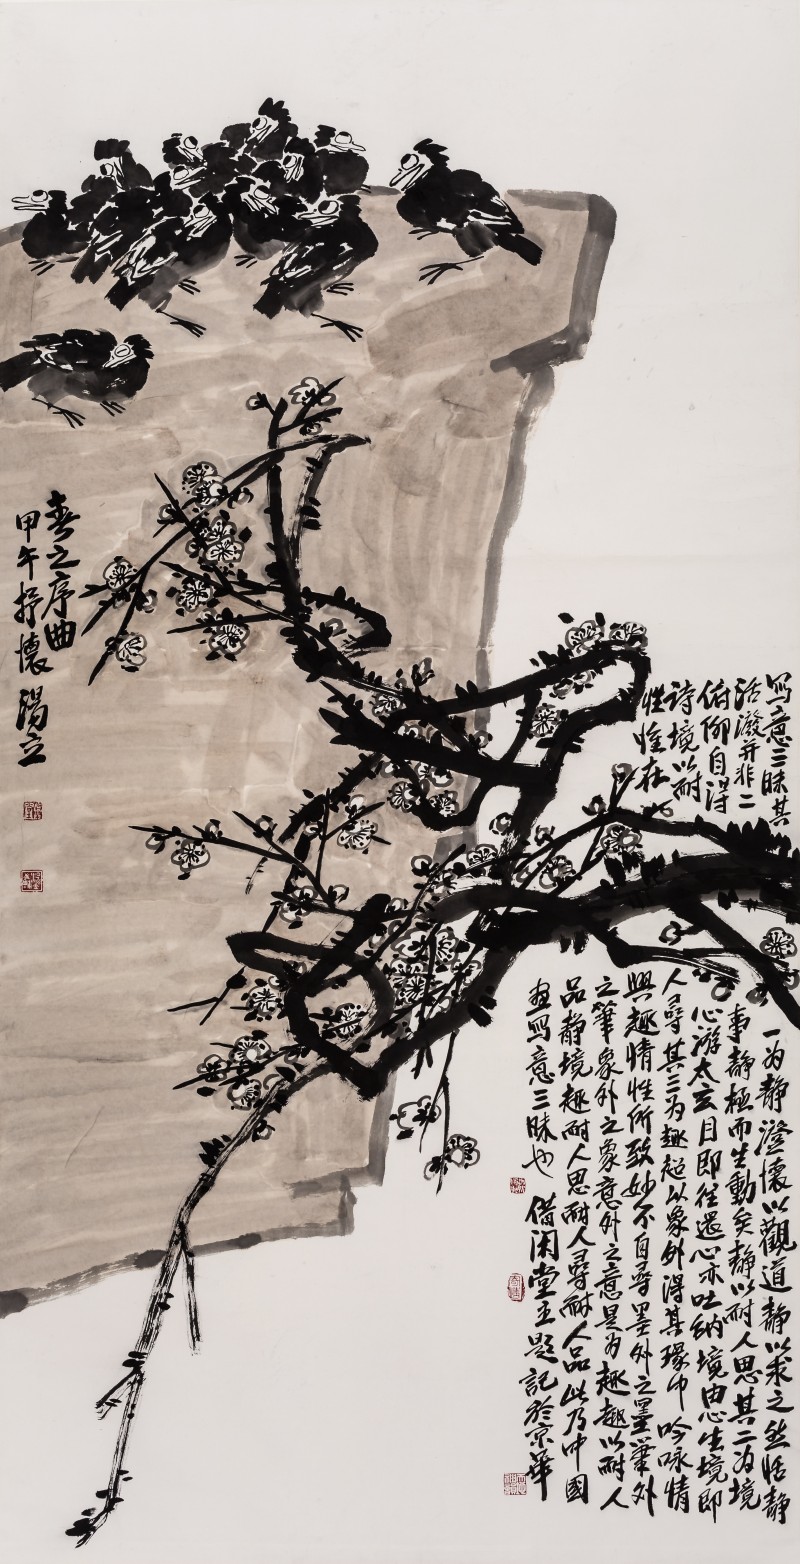 寫意三昧其一为靜澄懷以觀道靜以求之然恬靜
活潑并非二事靜極而生動矣靜以耐人思其二为境
俯仰自得心游太玄目即往還心亦吐納境由心生境即
詩境以耐人尋其三为趣超以象外得其環中吟咏情
性惟在興趣情性所致妙不自尋墨外之墨筆外
之筆象外之象意外之意是为趣趣以耐人
品靜境趣耐人思耐人尋耐人品此乃中國
画寫意三昧也 借閑堂主題記於京華
春之序曲
甲午抒懷 湯立